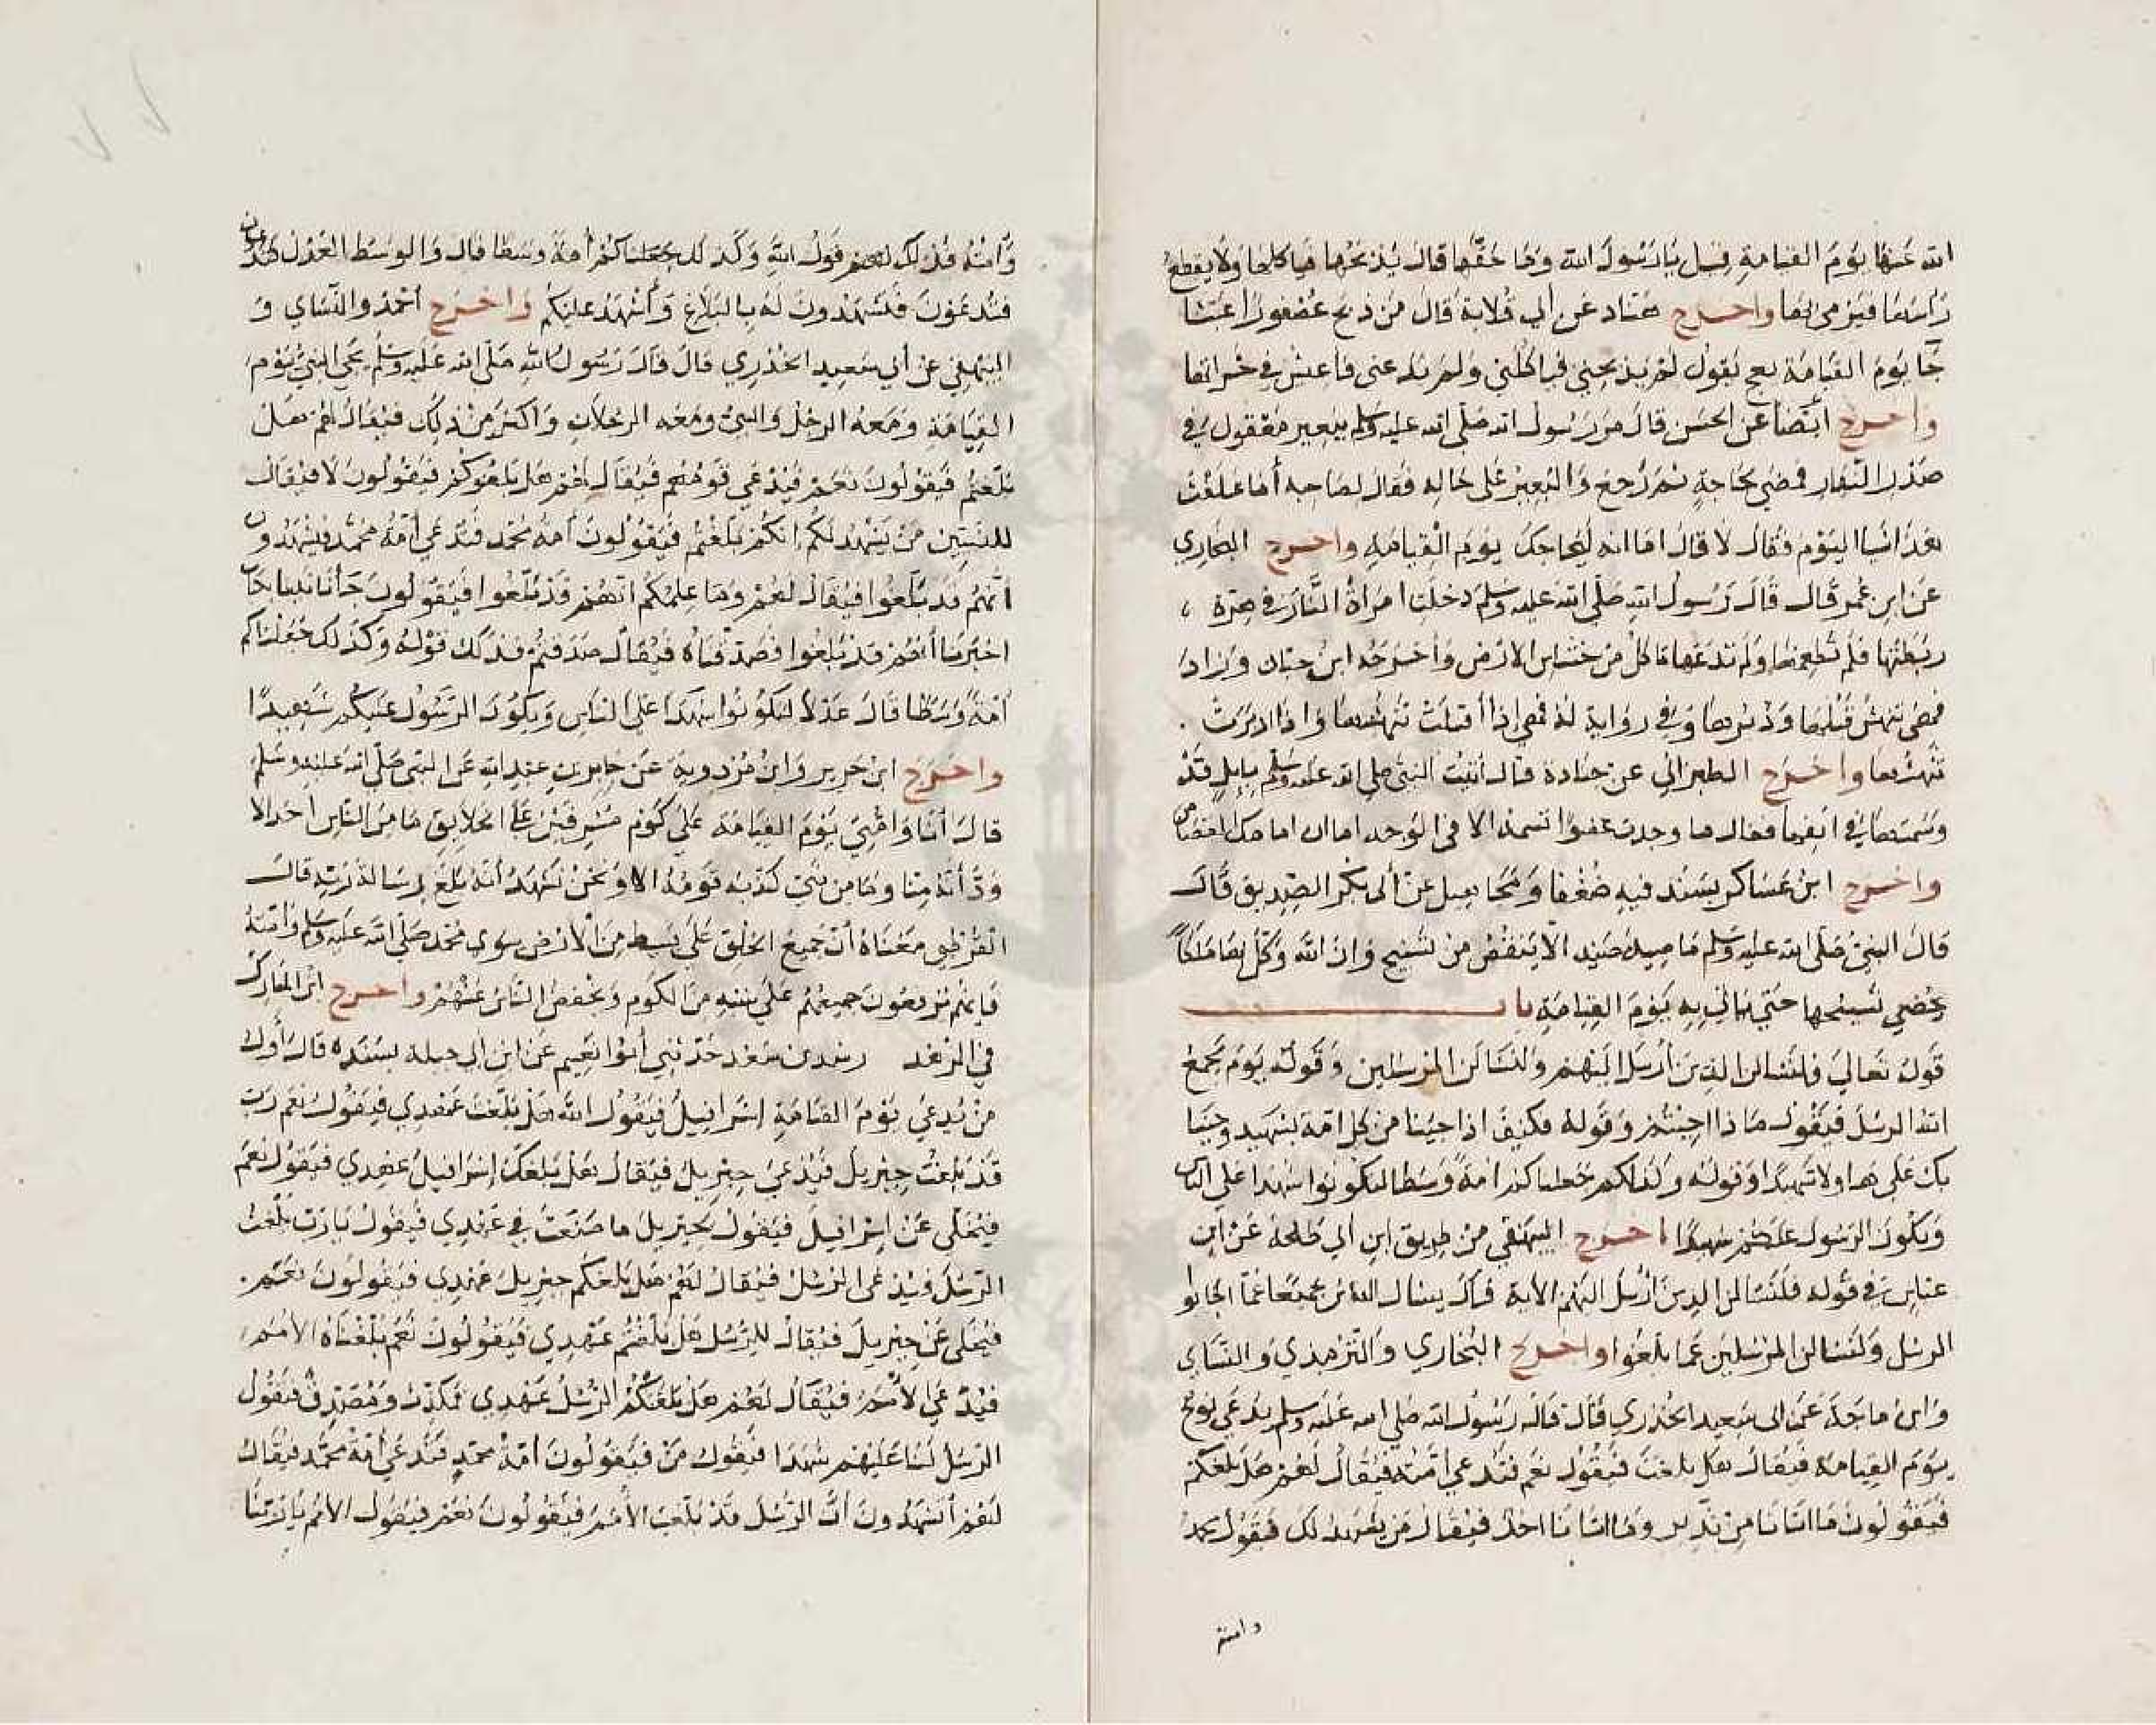 الله عنها يوم القيامة قيل يا رسول الله وما حقها قال يذبحها فياكلها ولا يقطع
راسها فيرمي بها واخرج هناد عن أبي قلابة قال من ذبح عصفورا عبثا
جا يوم القيامة يعج يقول لم يذبحني فياكلني ولم يدعني فاعيش في خشراتها
واخرج أيضا عن الحسن قال مر رسول الله صلى الله عليه وسلم ببعير معقول في
صدر النهار فقضى حاجته ثم رجع والبعير على حاله فقال لصاحبه أما علفت
هذا شيا اليوم فقال لا قال اما انه ليحاجك يوم القيامة واخرج البخاري
عن ابن عمر قال قال رسول الله صلى الله عليه وسلم دخلت امراة النار في هرة
ربطتها فلم تطعمها ولم تدعها تاكل من خشاش الارض وأخرجه ابن حبان وزاد
فهي تنهش قبلها ودبرها وفي رواية له فهي إذا أقبلت تنهشها واذا ادبرت
تنهشها واخرج الطبراني عن جنادة قال أتيت النبي صلى الله عليه وسلم بابل قد
وسمتها في انفها فقال ما وجدت عضوا تسمه الا في الوجه اما ان امامك القصاص
واخرج ابن عساكر بسند فيه ضعفا ومجاهيل عن أبي بكر الصديق قال
قال النبي صلى الله عليه وسلم ما صيد صيد الا بنقص من تسبيح وان الله وكل بها ملكا
يحصي تسبيحها حتى ياتي به يوم القيامة باب
قوله تعالى فلنسالن الذين أرسل اليهم ولنسالن المرسلين وقوله يوم يجمع
الله الرسل فيقول ماذا اجبتم وقوله فكيف اذا جينا من كل امة بشهيد وجينا
بك على هاولا شهيدا وقوله وكذلكم جعلناكم امة وسطا لتكونوا شهدا على الناس
ويكون الرسول عليكم شهيدا اخرج البيهقي من طريق ابن أبي طلحة عن ابن
عباس في قوله فلنسالن الذين أرسل اليهم الاية قال يسال الناس جميعا عما اجابوا
الرسل ولنسالن المرسلين عما بلغوا واخرج البخاري والترمذي والنساي
وابن ماجة عن ابي سعيد الخدري قال قال رسول الله صلى الله عليه وسلم يدعى نوح
يوم القيامة فيقال هل بلغت فيقول نعم فتدعى امته فيقال لهم هل بلغكم
فيقولون ما اتانا من نذير وما اتانا احد فيقال من يشهد لك فيقول محمد
وامته
وأمته فذلك قول الله وكذلك جعلناكم أمة وسطا قال والوسط العدل
فتدعون فتشهدون له بالبلاغ وأشهد عليكم واخرج أحمد والنساي و
البيهقي عن أبي سعيد الخدري قال قال رسول الله صلى الله عليه وسلم يجي النبي يوم
القيامة ومعه الرجل والنبي ومعه الرجلان واكثر من ذلك فيقال لهم هل
بلغتم فيقولون نعم فيدعى قومهم فيقال لهم هل بلغوكم فيقولون لا فيقال
للنبيين من يشهد لكم انكم بلغتم فيقولون أمة محمد فتدعى أمة محمد فيشهدون
أنهم قد بلغوا فيقال لهم وما علمكم انهم قد بلغوا فيقولون جأنا نبينا
اخبرنا أنهم قد بلغوا فصدقناه فيقال صدقتم فذلك قوله وكذلك جعلناكم
أمة وسطا قال عدلا لتكونوا شهدا على الناس ويكون الرسول عليكم شهيدا
واخرج ابن جرير وابن مردويه عن جابر بن عبد الله عن النبي صلى الله عليه وسلم
قال أنا وامتي يوم القيامة على كوم مشرفين على الخلايق ما من الناس احد الا
ود أنه منا وما من نبي كذبه قومه الا ونحن نشهد أنه بلغ رسالة ربه قال
القرظبي معناه أن جميع الخلق على بسيط من الأرض سوى محمد صلى الله عليه وسلم وأمته
فإنهم يرفعون جميعهم على شبه من الكوم ويخفض الناس عنهم واخرج ابن المبارك
في الزهد رشدين بن سعد حدثني أبو نعيم عن ابن ابي جبلة بسنده قال أول
من يدعى يوم القيامة إسرافيل فيقول الله هل بلغت عهدي فيقول نعم رب
قد بلغت جبريل فيدعى جبريل فيقال هل بلغك إسرافيل عهدي فيقول نعم
فيخلى عن إسرافيل فيقول لجبريل ما صنعت في عهدي فيقول يا رب بلغت
الرسل فيدعى الرسل فيقال لهم هل بلغكم جبريل عهدي فيقولون نعم
فيخلى عن جبريل فيقال للرسل هل بلغتم عهدي فيقولون نعم بلغناه الأمم
فيدعى الأمم فيقال لهم هل بلغكم الرسل عهدي فمكذب ومصدق فيقول
الرسل لنا عليهم شهدا فيقول من فيقولون أمة محمد فتدعى أمة محمد فيقال
لهم أتشهدون أن الرسل قد بلغت الأمم فيقولون نعم فيقول الأمم يا ربنا